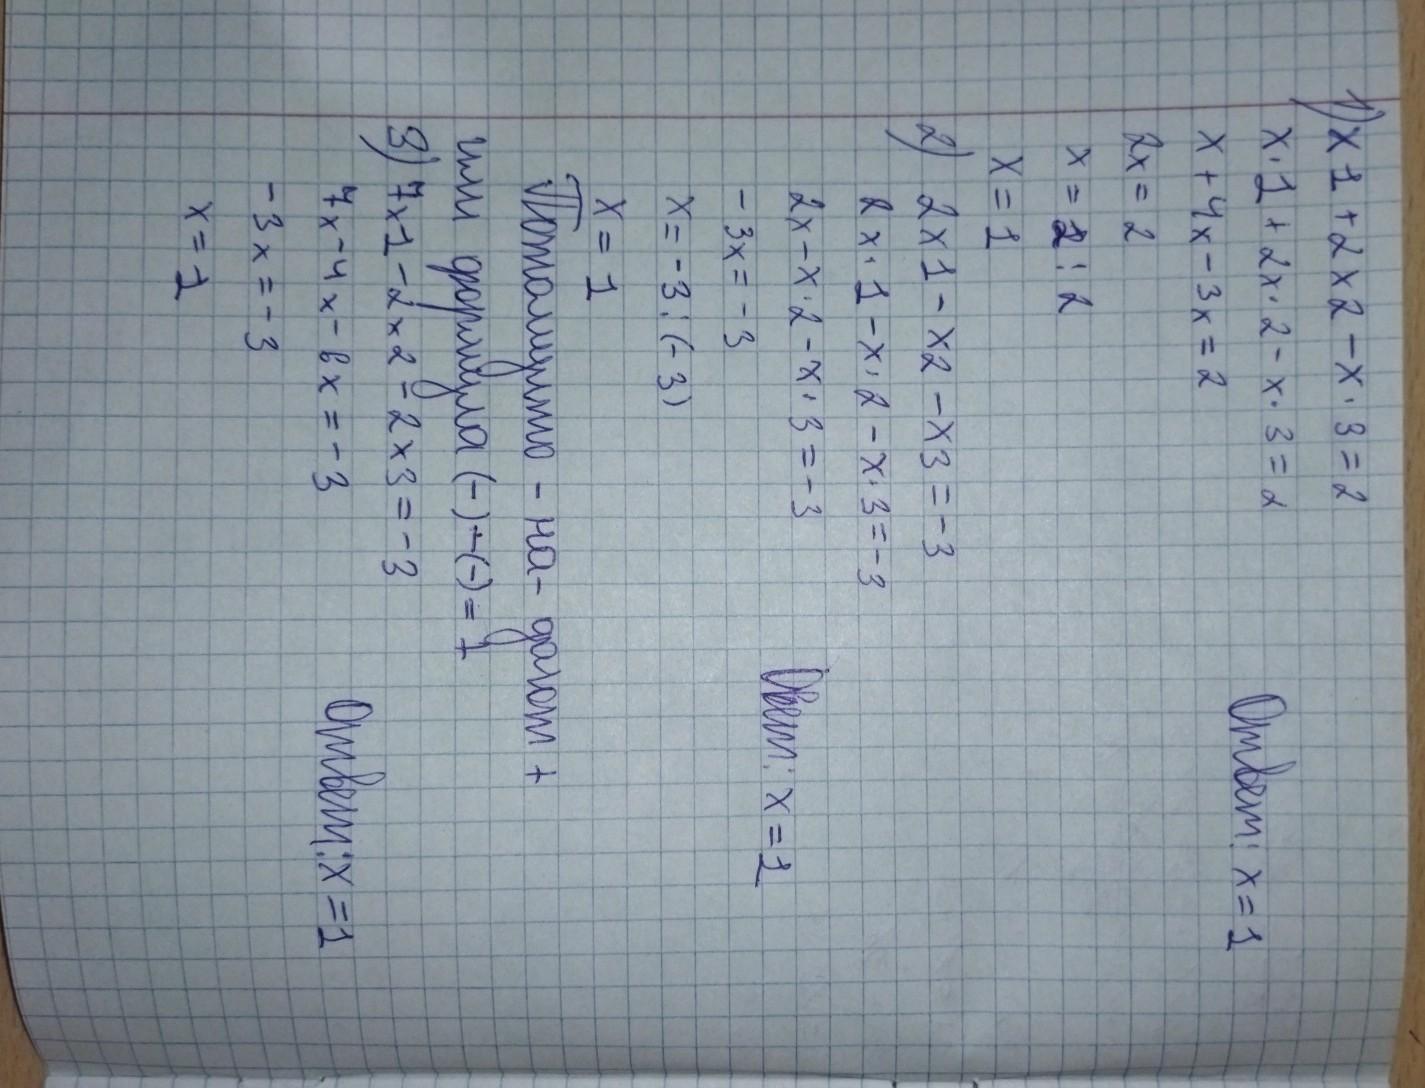 1) x1+2x2-x·3=2
x·1+2x·2-x·3=2
x+4x-3x=2
2x=2
x=2:2
x=1
Ответ: x=1
2) 2x1-x2-x3=-3
2x·1-x·2-x·3=-3
2x-x·2-x·3=-3
-3x=-3
x=-3:(-3)
x=1
Овет: x=1
Потомушто - на- дают +
или формула (-)+(-)=+
3) 7x1-2x2-2x3=-3
7x-4x-6x=-3
-3x=-3
x=1
Ответ: x=1